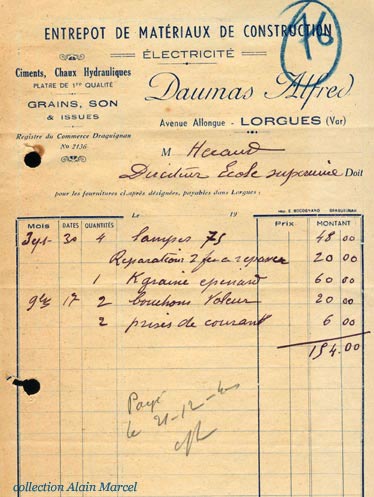 76
ENTREPOT DE MATÉRIAUX DE CONSTRUCTION
ÉLECTRICITÉ
Ciments, Chaux Hydrauliques
PLATRE DE 1re QUALITÉ
GRAINS, SON
& ISSUES
Registre du Commerce Draguignan
No 2136
Daumas Alfred
Avenue Allongue - LORGUES (Var)
M
Directeur École supérieure Doit
pour les fournitures ci-après désignées, payables dans Lorgues :
Le 19
Mois DATES QUANTITÉS Prix MONTANT
Sept 30 4 lampes 75 48 00
Réparations 2 fers a repasser 20 00
1 K graine epinard 60 00
9bre 17 2 bouchons Voleur 20 00
2 prises de courant 6 00
154.00
Payé
le 21-12-40
collection Alain Marcel